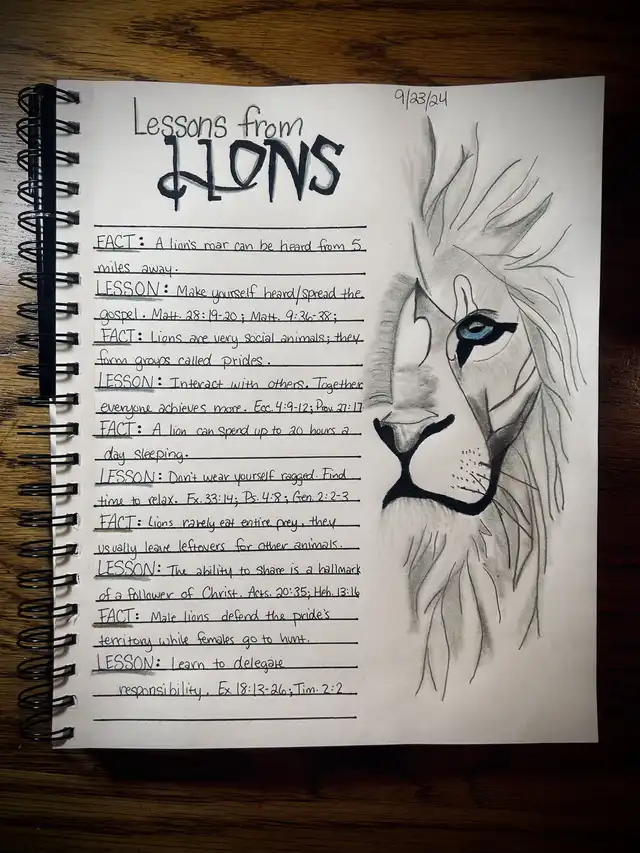 9/23/24
Lessons from
LIONS
FACT: A lion's roar can be heard from 5
miles away.
LESSON: Make yourself heard/spread the
gospel. Matt. 28:19-20; Matt. 9:36-38;
FACT: Lions are very social animals; they
form groups called prides.
LESSON: Interact with others. Together
everyone achieves more. Ecc. 4:9-12; Prov. 27:17
FACT: A lion can spend up to 20 hours a
day sleeping.
LESSON: Don't wear yourself ragged. Find
time to relax. Ex. 33:14; Ps. 4:8; Gen. 2:2-3
FACT: Lions rarely eat entire prey, they
usually leave leftovers for other animals.
LESSON: The ability to share is a hallmark
of a follower of Christ. Acts. 20:35; Heb. 13:16
FACT: Male lions defend the pride's
territory while females go to hunt.
LESSON: Learn to delegate
responsibility. Ex 18:13-26; Tim. 2:2